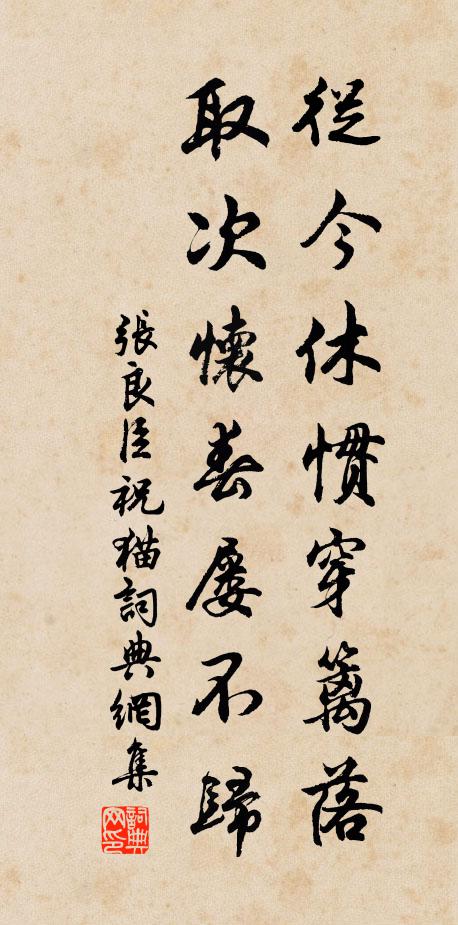 從今休慣穿篱落
取次懷春屢不歸
張良臣祝猫詞典網集
詞典网印